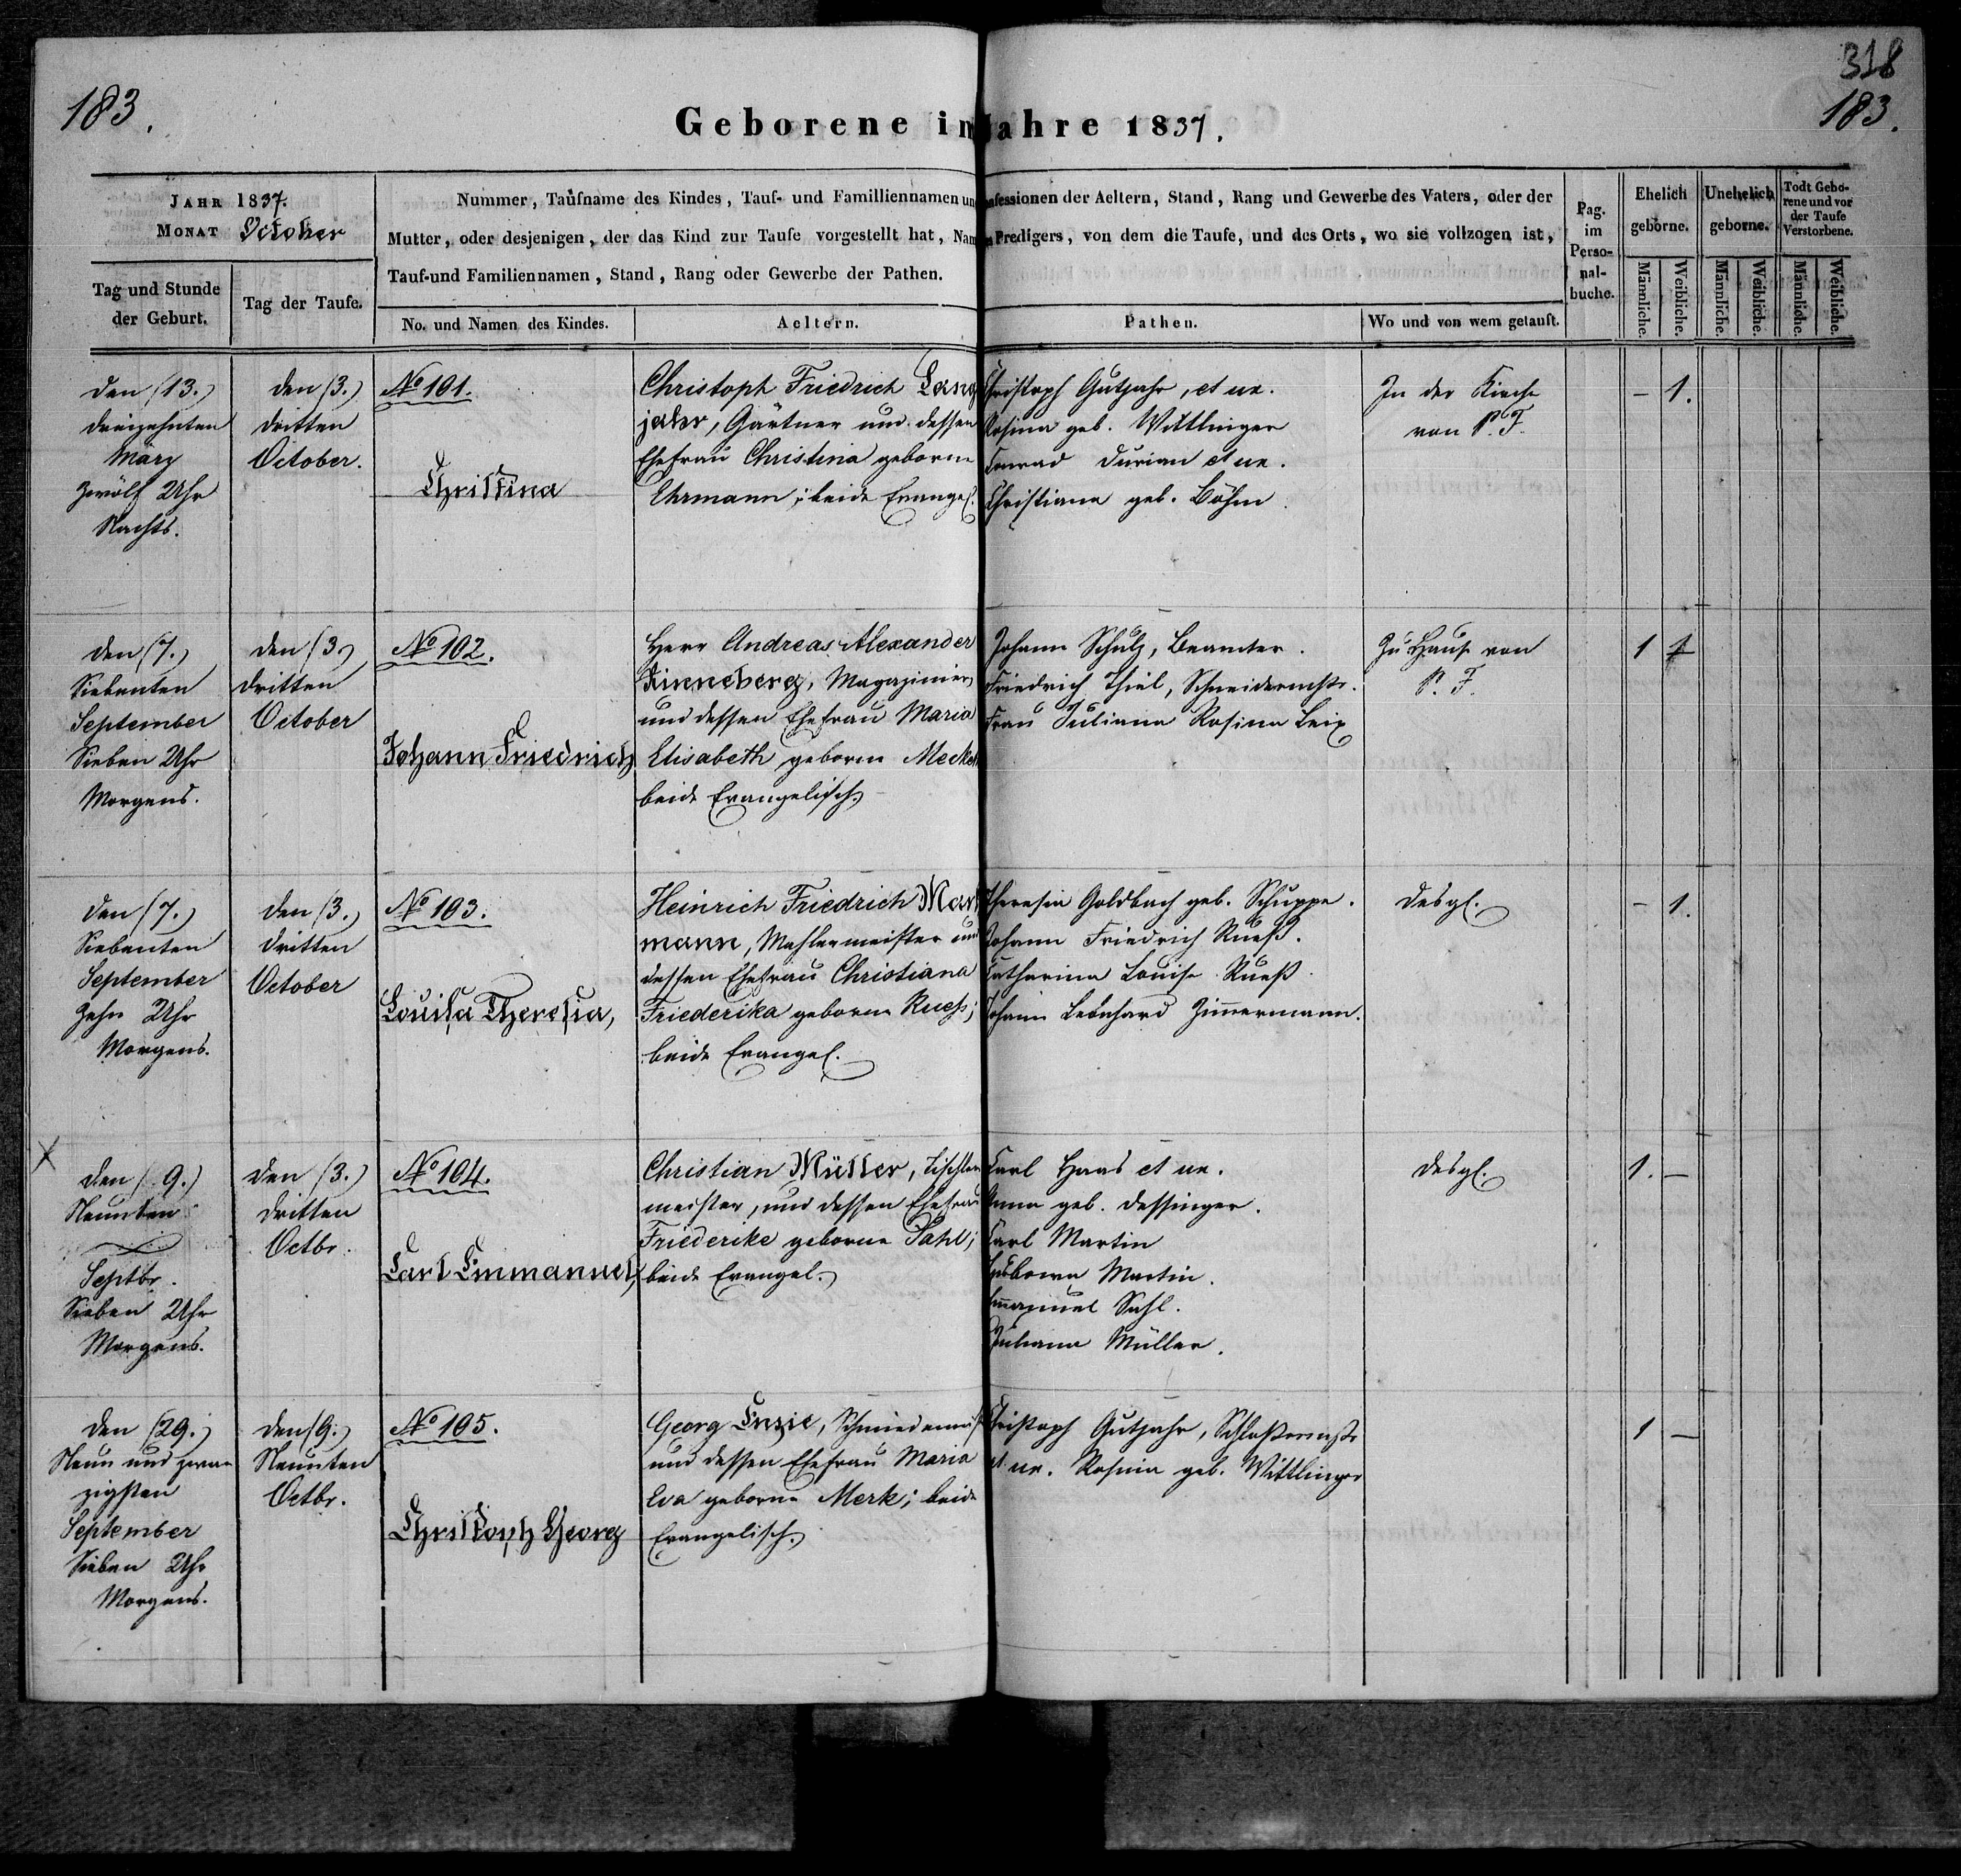 318
183.
183.
Geborene im Jahre 1837.
JAHR 1837.
MONAT October
Nummer, Taufname des Kindes, Tauf- und Familliennamen und Confessionen der Aeltern, Stand, Rang und Gewerbe des Vaters, oder der
Mutter, oder desjenigen, der das Kind zur Taufe vorgestellt hat, Namen Predigers, von dem die Taufe, und des Orts, wo sie vollzogen ist,
Tauf-und Familiennamen, Stand, Rang oder Gewerbe der Pathen.
Tag und Stunde
der Geburt.
Tag der Taufe.
No. und Namen des Kindes.
Aeltern.
Pathen.
Wo und von wem getauft.
Pag.
im
Perso-
nal-
buche.
Ehelich
geborne.
Unehelich
geborne.
Todt Gebo-
rene und vor
der Taufe
Verstorbene.
Männliche.
Weibliche.
Männliche.
Weibliche.
Männliche.
Weibliche.
den (13.)
dreizehnten
März
Zwölf Uhr
Nachts.
den (3.)
dritten
October.
No 101.
Christina
Christoph Friedrich Lang
jahr, Gärtner und dessen
Ehefrau Christina geborne
Ehrmann; beide Evangel.
Christoph Gutjahr, et ux.
Rosina geb. Wittlinger
Conrad Durian et ux.
Christiana geb. Böhm.
In der Kirche
von P. F.
– 1.
den (7.)
Siebenten
September
Sieben Uhr
Morgens.
den (3.)
dritten
October
No 102.
Johann Friedrich
Herr Andreas Alexander
Zinneberg, Magazinier,
und dessen Ehefrau Maria
Elisabeth geborne
beide Evangelisch.
Johann Schulz, Beamter.
Friedrich Thiel, Schneidermstr.
Frau Juliana Rosina Leix
Zu Hause von
P. F.
1
den (7.)
Siebenten
September
Zehn Uhr
Morgens.
den (3.)
dritten
October
No 103.
Louisa Theresia,
Heinrich Friedrich
mann, Mahlermeister und
dessen Ehefrau Christiana
Friederika geborne Rueß;
beide Evangel.
Theresia Goldbach geb. Schuppe.
Johann Friedrich Rueß.
Catharina Louise Rueß.
Johann Leonhard Zimmermann.
desgl.
– 1.
X
den (9.)
Neunten
Septbr.
Sieben Uhr
Morgens.
den (3.)
dritten
Octbr.
No 104.
Carl Emmanuel,
Christian Müller, Tischler
meister, und dessen Ehefrau
Friederike geborne Sahl;
beide Evangel.
Carl Haas et ux.
Anna geb. Dessinger.
Carl Martin
Martin.
Emanuel Sahl.
Juliana Müller.
desgl.
1. –
den (29.)
Neun und zwan
zigsten
September
Sieben Uhr
Morgens.
den (9.)
Neunten
Octbr.
No 105.
Christoph Georg
Georg Enzie, Schmiedemstr
und dessen Ehefrau Maria
Eva geborne Merk; beide
Evangelisch.
Christoph Gutjahr, Schlossermstr
et ux. Rosina geb. Wittlinger
1 –